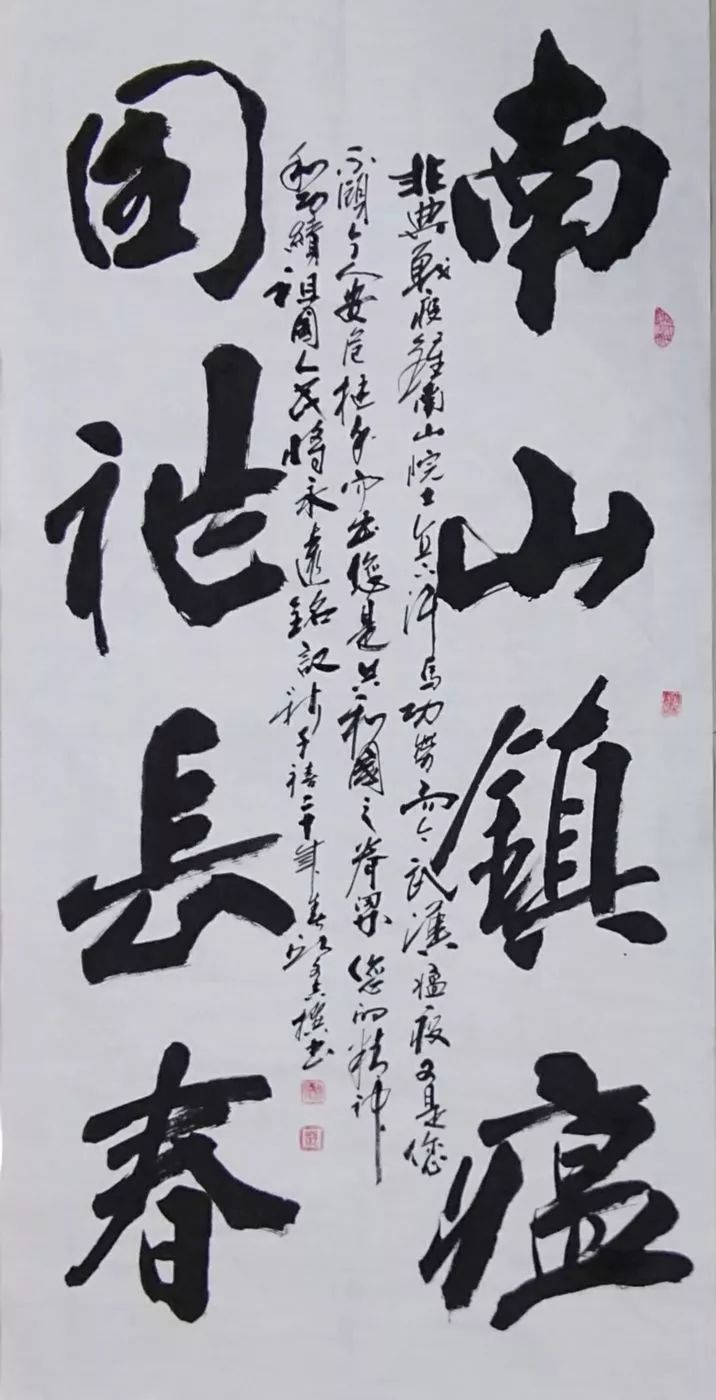 南山鎮瘟
国祚長春
非典戰疫鍾南山院士汗馬功勞而今武漢瘟疫又是您
不顧个人安危挺身而出您是共和國之脊梁您的精神
和功績祖國人民將永遠銘記二十年春撰书